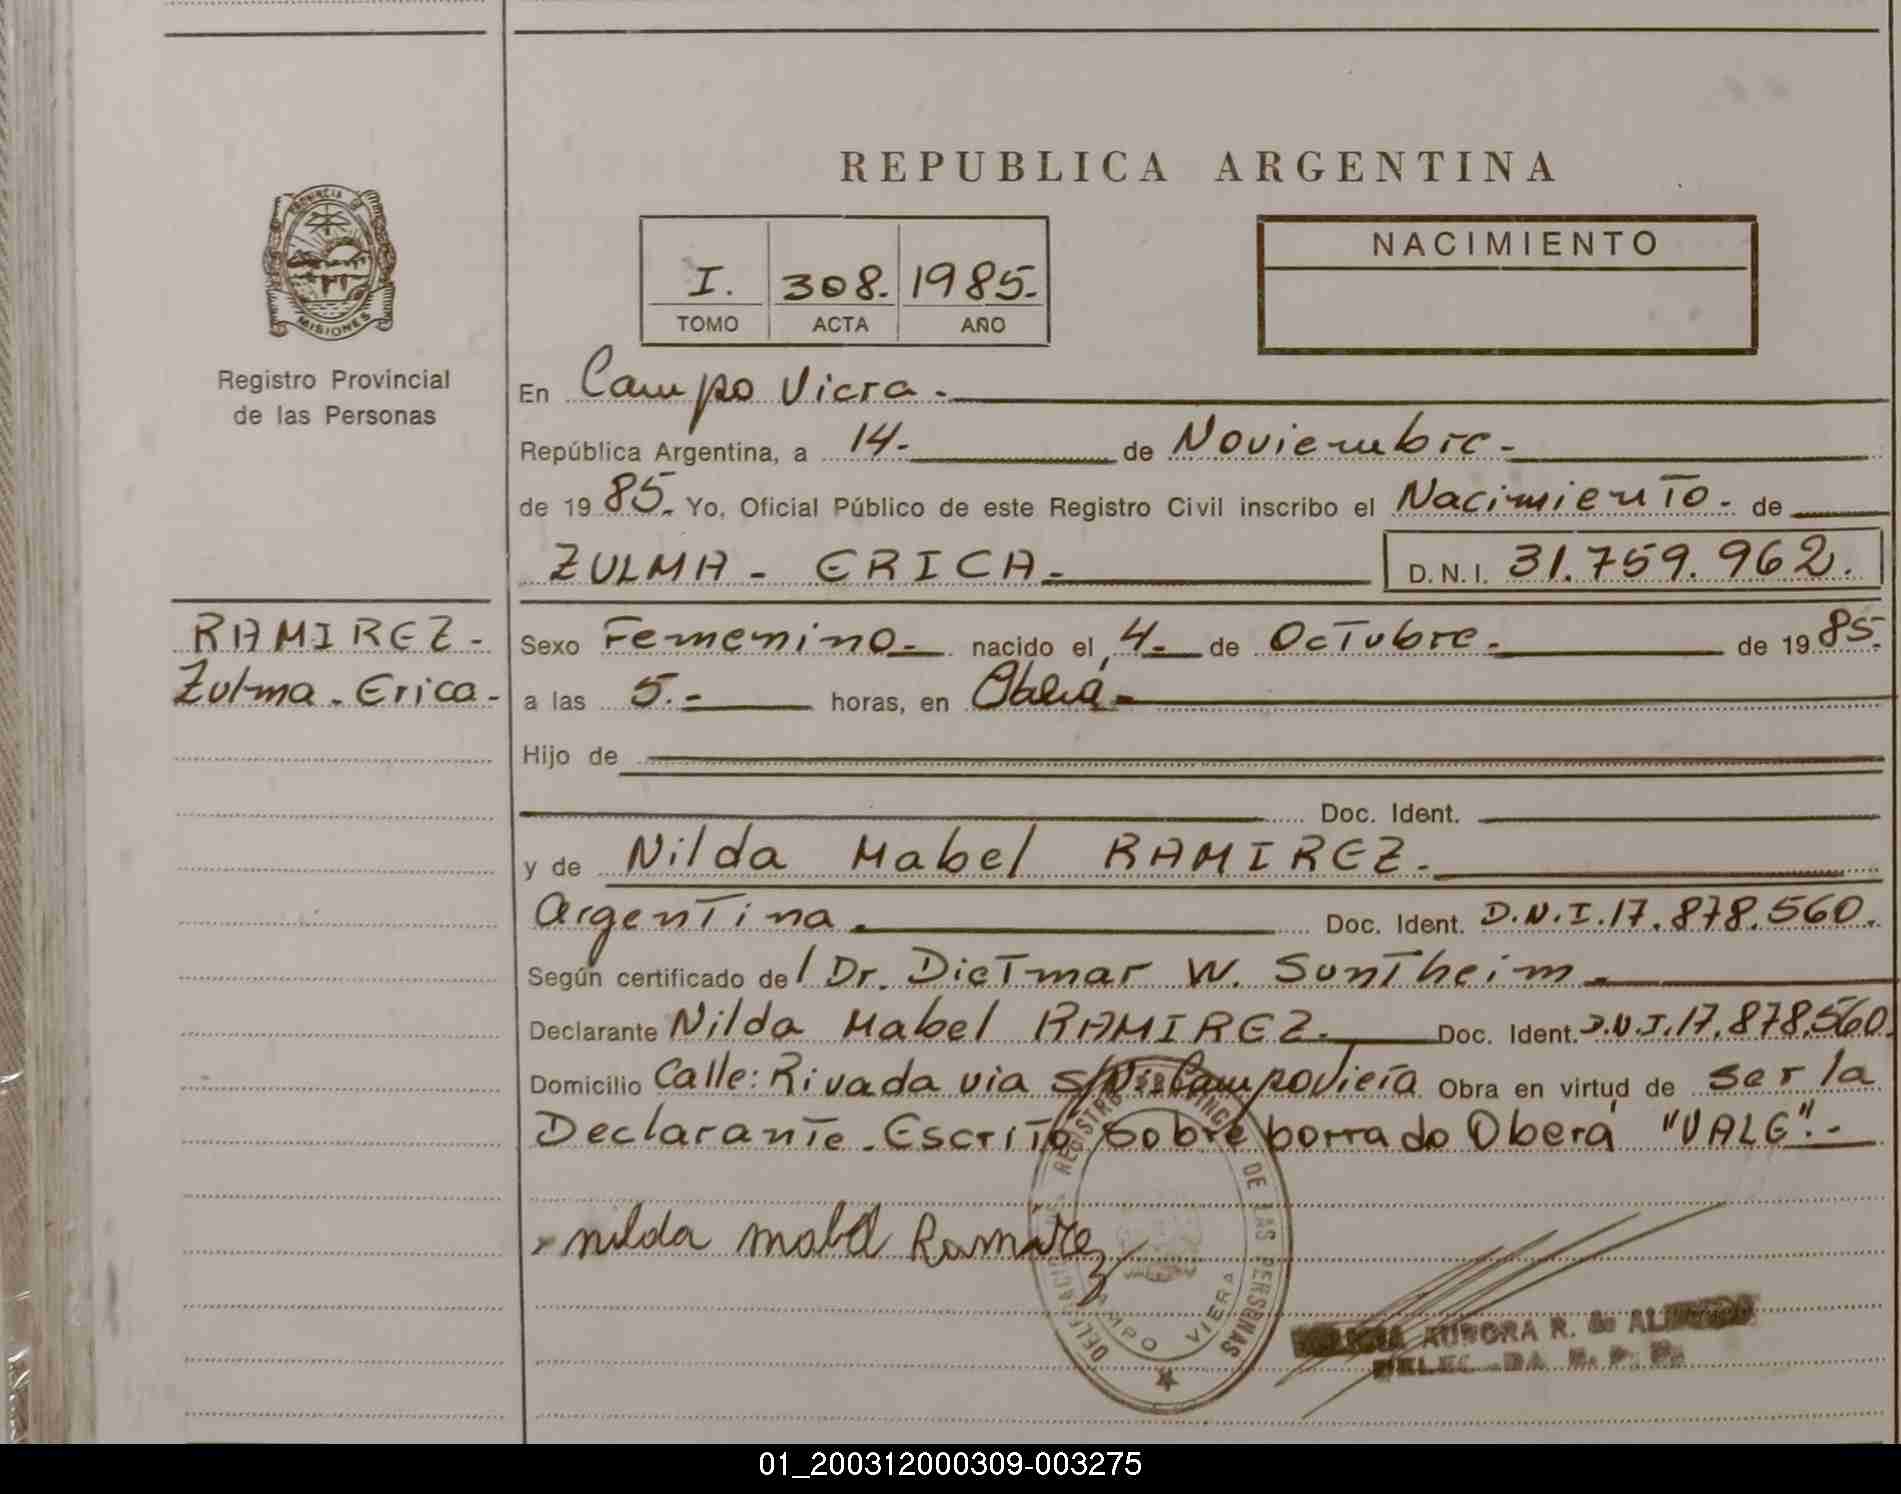 REPUBLICA ARGENTINA
PROVINCIA DE
MISIONES
Registro Provincial
de las Personas
I. 308. 1985.
TOMO ACTA AÑO
NACIMIENTO
En Campo Viera.
República Argentina, a 14. de Noviembre.
de 19 85. Yo, Oficial Público de este Registro Civil inscribo el Nacimiento. de
ZULMA - ERICA. D.N.I. 31.759.962.
RAMIREZ.
Zulma. Erica.
Sexo Femenino. nacido el 4. de Octubre. de 19 85.
a las 5. horas, en Oberá
Hijo de
Doc. Ident.
y de Nilda Mabel RAMIREZ.
Argentina. Doc. Ident. D.N.I. 17.878.560.
Según certificado del Dr. Dietmar W. Suntheim.
Declarante Nilda Mabel RAMIREZ. Doc. Ident. D.N.I. 17.878.560.
Domicilio Calle: Rivadavia s/Nº Campo Viera Obra en virtud de ser la
Declarante. Escrito sobre borrado Oberá "VALE".-
nilda mabel Ramirez
REGISTRO PROVINCIAL DE LAS PERSONAS
CAMPO VIERA
AURORA R. de
01_200312000309-003275